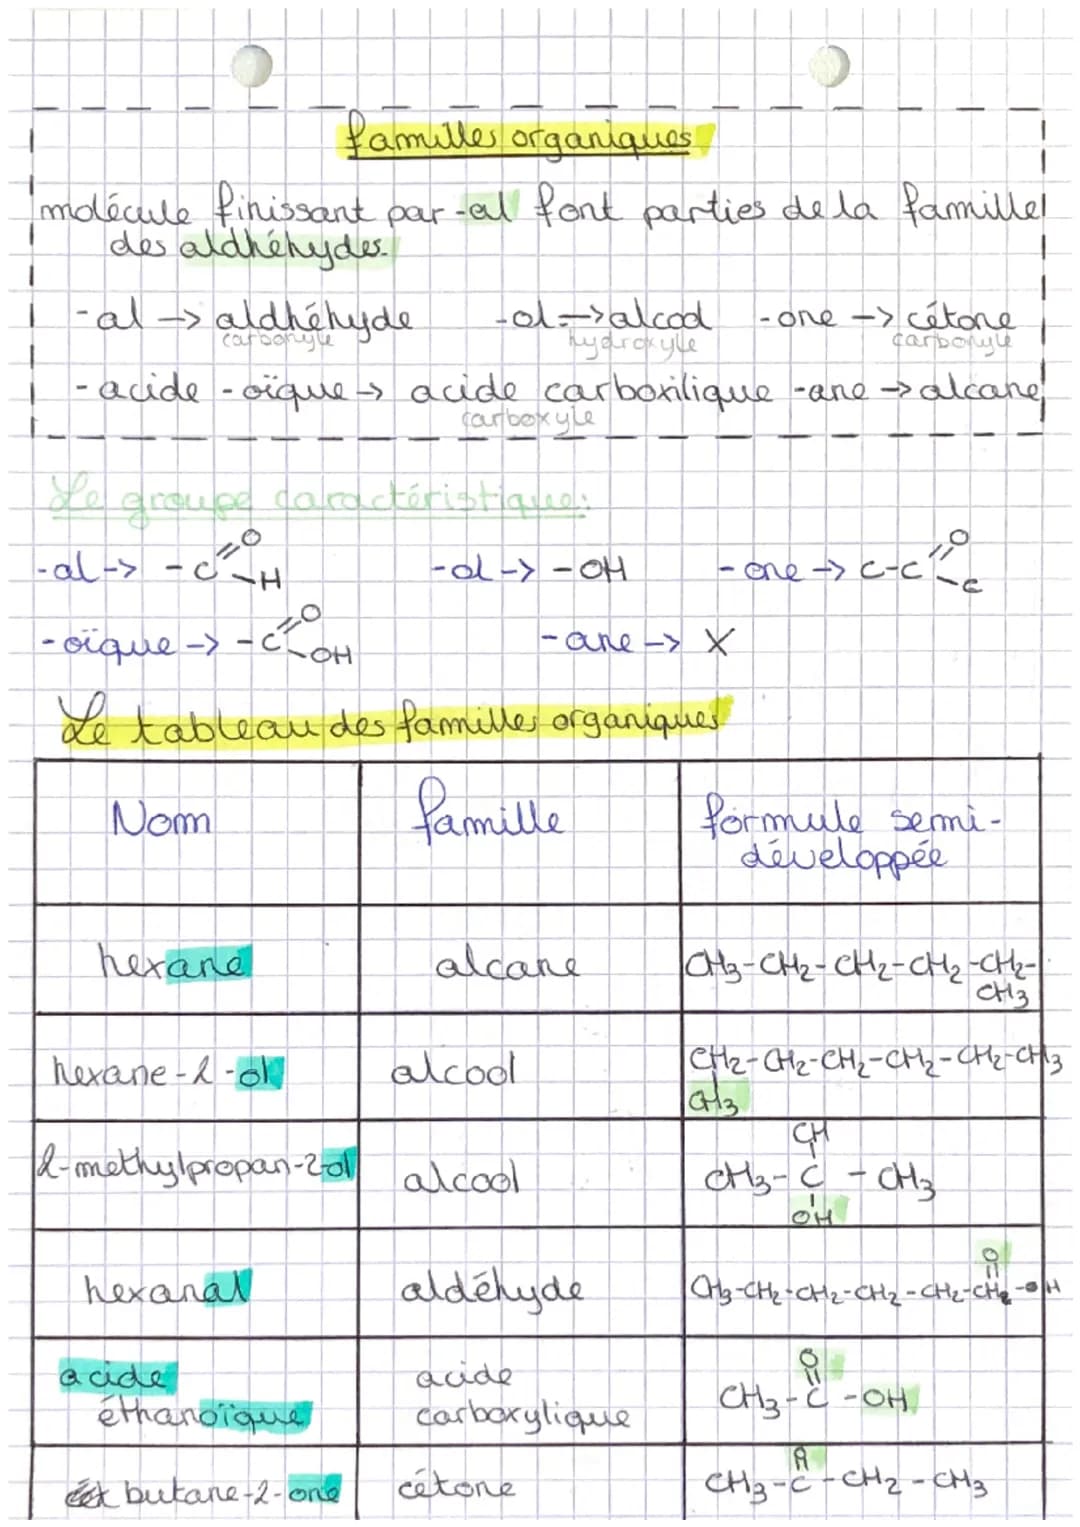 familles organiques
molécule finissant par -al font parties de la famille
des aldhéhydes.
-al -> aldhéhyde -ol -> alcool -one -> cétone
carbonyle hydroxyle carbonyle
-acide -oïque -> acide carboxilique -ane -> alcane
carboxyle
Le groupe caractéristique:
-al -> -C=O -H -ol -> -OH -one -> C-C=O -C
-oïque -> -C=O -OH -ane -> X
Le tableau des familles organiques
Nom famille formule semi-
développée
hexane alcane CH3-CH2-CH2-CH2-CH2-
CH3
hexane-2-ol alcool CH2-CH2-CH2-CH2-CH2-CH3
CH3
CH
2-methylpropan-2-ol alcool CH3-C-CH3
OH
O
hexanal aldéhyde CH3-CH2-CH2-CH2-CH2-CH2-H
O
acide acide
éthanoïque carboxylique CH3-C-OH
butane-2-one cétone CH3-C-CH2-CH3